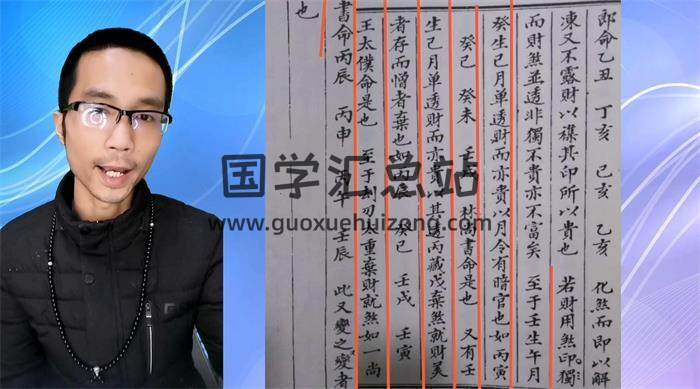 郎命乙丑 丁亥 己亥 乙亥 化煞而即以解
凍又不露財以襍其印所以貴也 若財用煞印獨
而財煞並透非獨不貴亦不富矣 至于壬生午月
癸生巳月单透財而亦貴以月令有暗官也如丙寅
癸巳 癸未 壬戌 林尚書命是也 又有壬
生巳月单透財而亦貴其透丙藏戊棄煞就財美
者存而憎者棄也如丙辰 癸巳 壬戌 壬寅
王太僕命是也 至于刦刃太重棄財就煞如一尚
書命丙辰 丙申 丙午 壬辰 此又變之變者
也
国学汇总站
www.guoxuehuizong.com